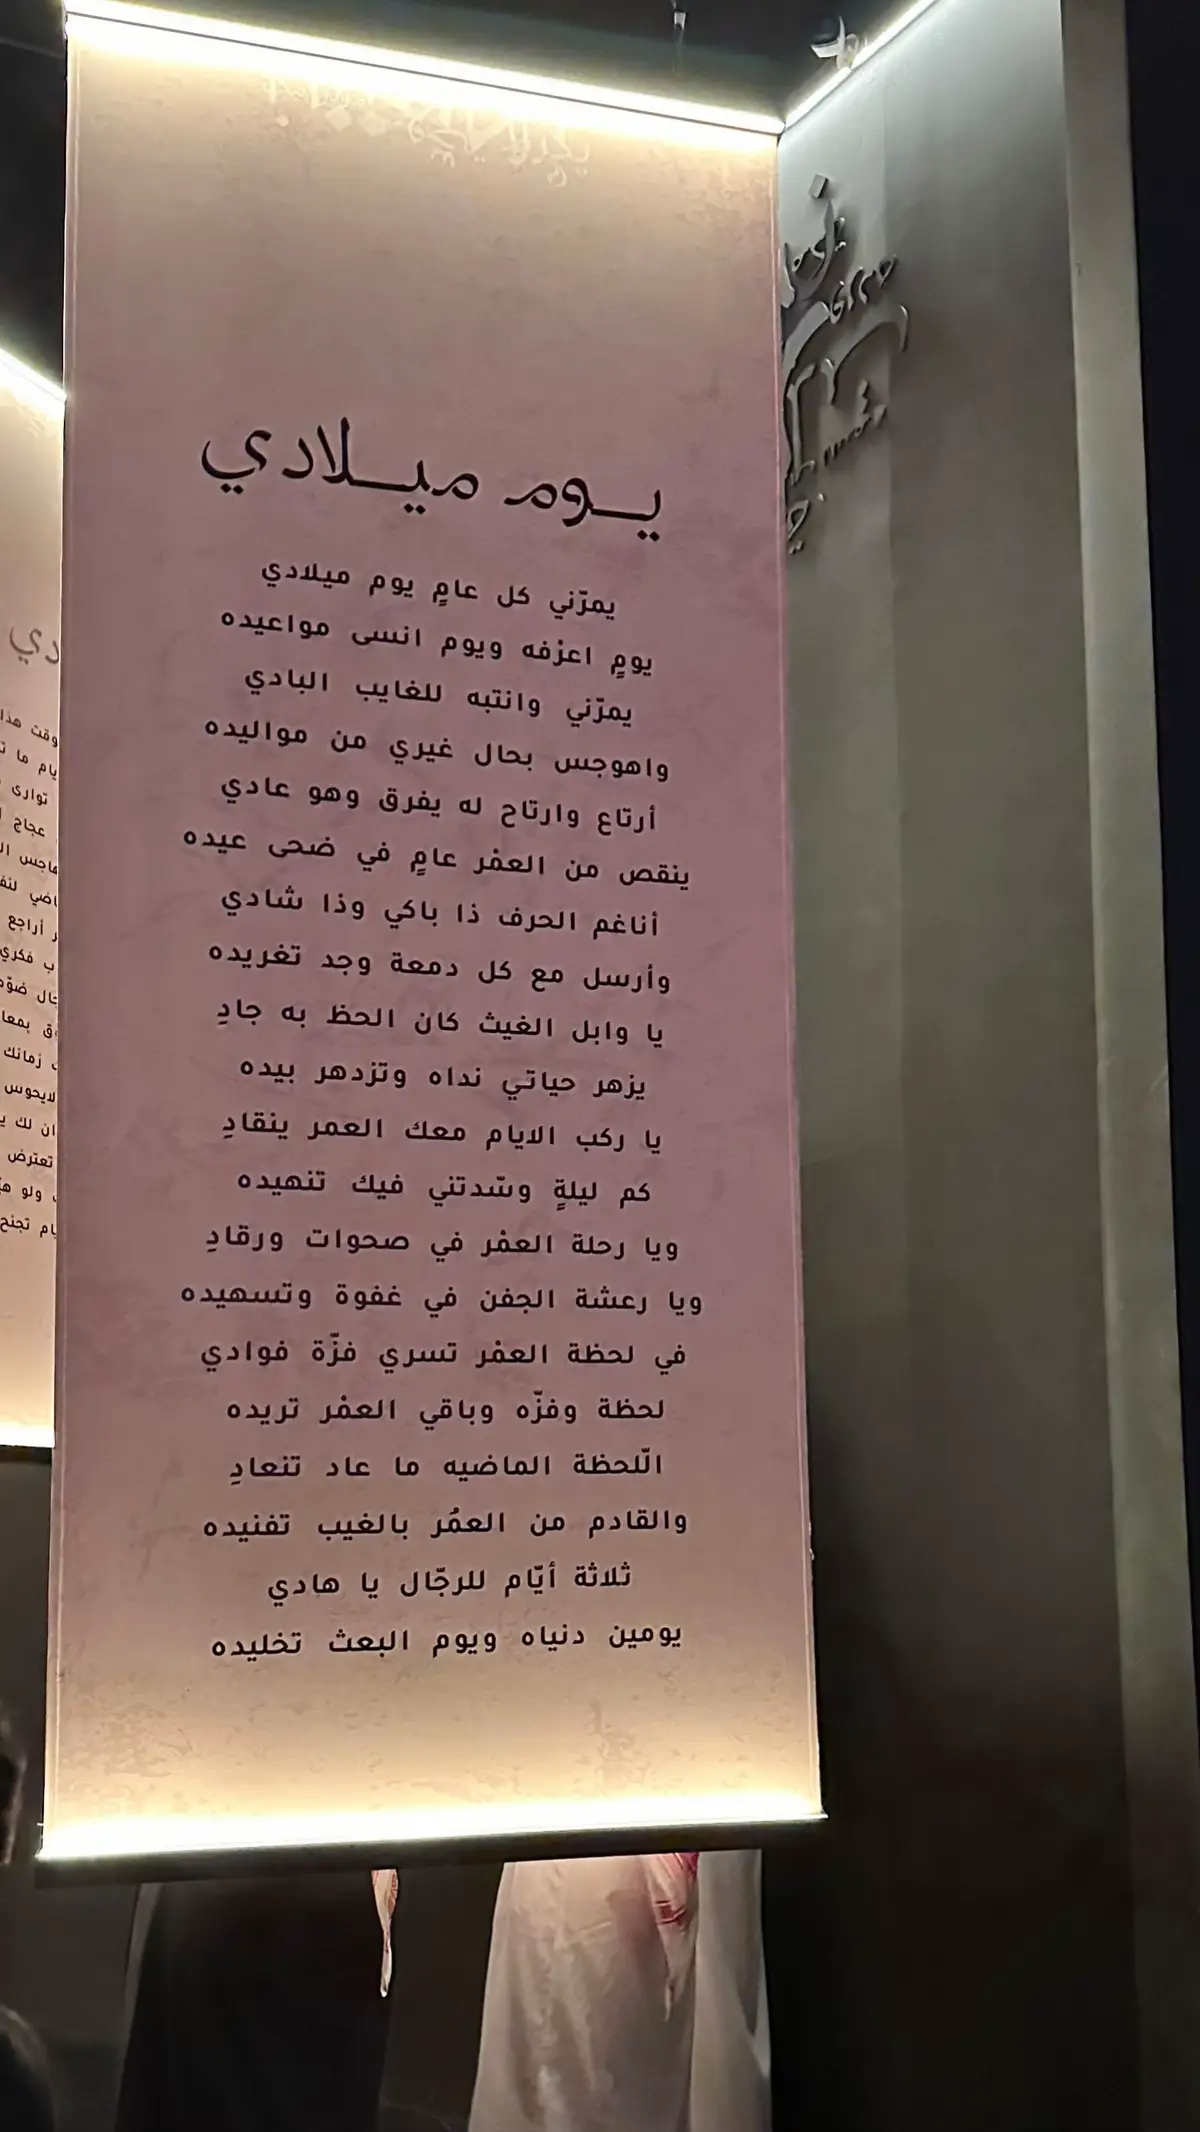 يوم ميلادي
يمرّني كل عامٍ يوم ميلادي
يومٍ اعرْفه ويوم انسى مواعيده
يمرّني وانتبه للغايب البادي
واهوجس بحال غيري من مواليده
أرتاع وارتاح له يفرق وهو عادي
ينقص من العمْر عامٍ في ضحى عيده
أناغم الحرف ذا باكي وذا شادي
وأرسل مع كل دمعة وجد تغريده
يا وابل الغيث كان الحظ به جادِ
يزهر حياتي نداه وتزدهر بيده
يا ركب الايام معك العمر ينقادِ
كم ليلةٍ وسّدتني فيك تنهيده
ويا رحلة العمْر في صحوات ورقادِ
ويا رعشة الجفن في غفوة وتسهيده
في لحظة العمْر تسري فزّة فوادي
لحظة وفزّه وباقي العمْر تريده
الّلحظة الماضيه ما عاد تنعادِ
والقادم من العمُر بالغيب تفنيده
ثلاثة أيّام للرجّال يا هادي
يومين دنياه ويوم البعث تخليده
دي
وقت هذا
توارى
عجاج
أراجع
فكري
زمانك
لايحوس
ان لك
تعترض
ولو
تجنح